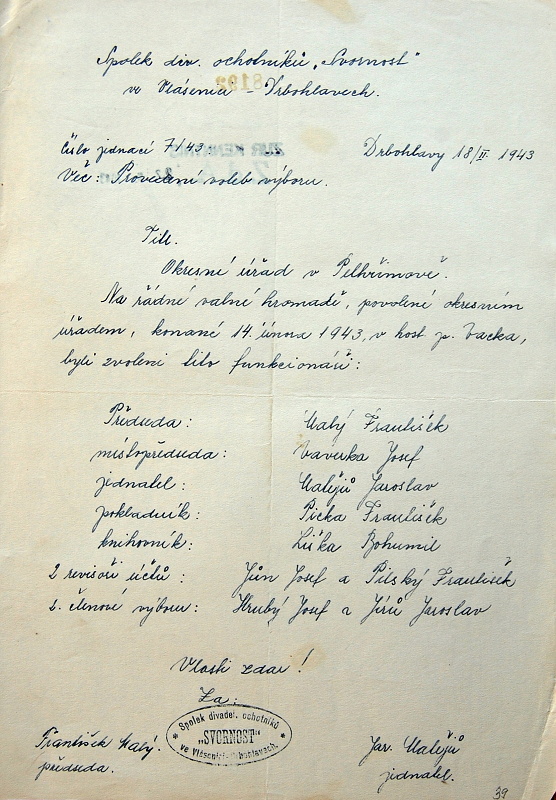 Spolek div. ochotníků „Svornost"
ve Vlásenici – Drbohlavech.
Číslo jednací 7/43
Drbohlavy 18/II. 1943
Věc: Provedení voleb výboru.
Titl.
Okresní úřad v Pelhřimově.
Na řádné valné hromadě, povolené okresním
úřadem, konané 14. února 1943, v host. p. Vacka,
byli zvoleni tito funkcionáři:
Předseda: Malý František
místopředseda: Vaverka Josef
jednatel: Matějů Jaroslav
pokladník: Picka František
knihovník: Liška Bohumil
2 revisoři účtů: Jůn Josef a Pilský František
2. členové výboru: Hrubý Josef a Jírů Jaroslav
Vlasti zdar!
Za:
Spolek divadel. ochotníků
„SVORNOST"
ve Vlásenici-Drbohlavech.
František Malý.
předseda.
Jar. Matějů
jednatel.
39